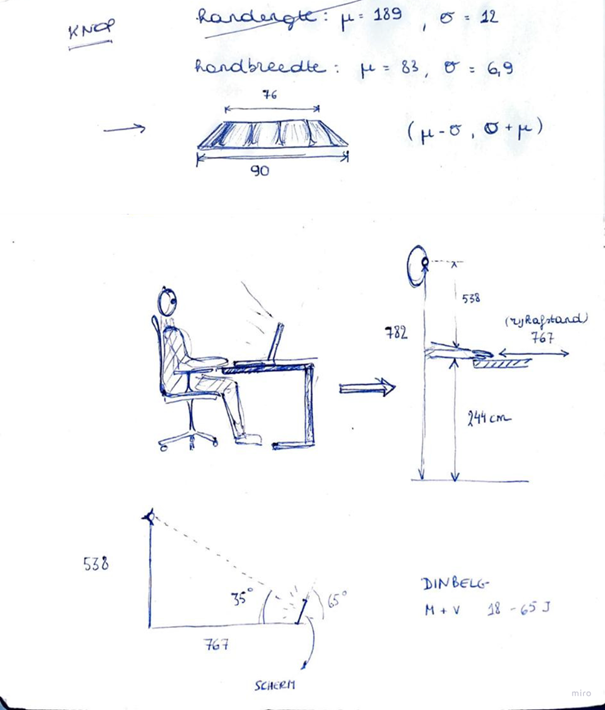 KNOP
Handlengte : μ = 189 , σ = 12
Handbreedte : μ = 83, σ = 6,9
76
(μ - σ , σ + μ)
90
538
(rijkafstand)
782
767
244 cm
538
35°
65°
767
SCHERM
DINBELG
M + V 18 - 65 J
miro